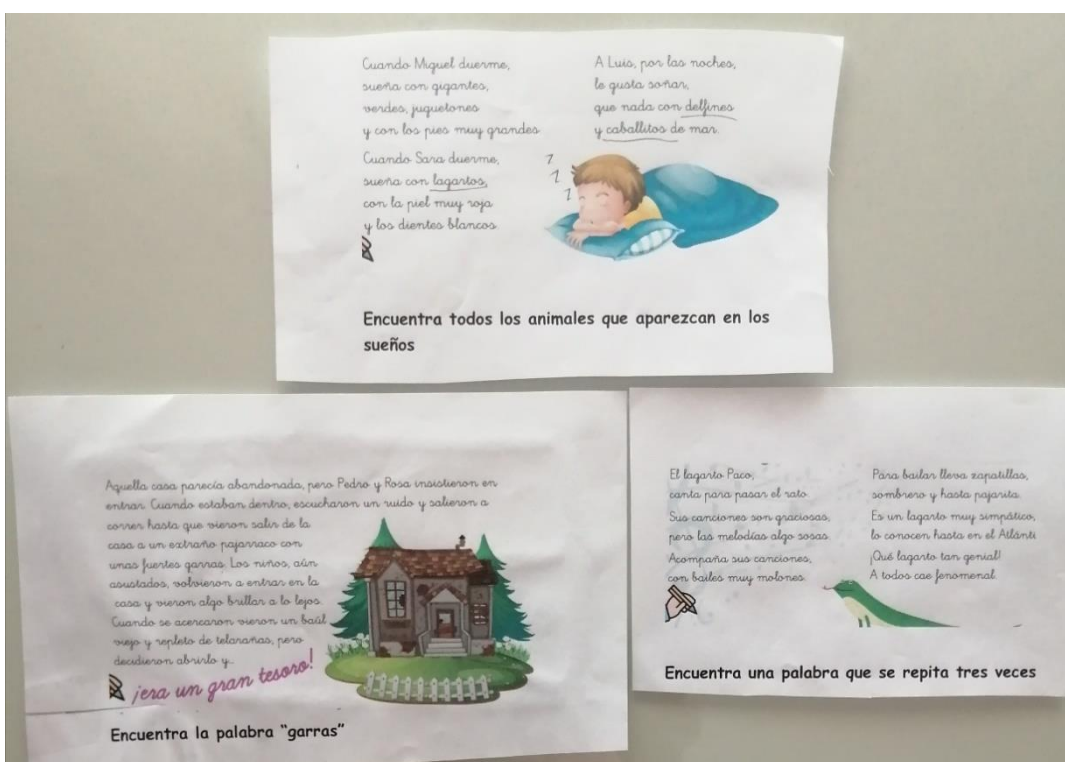 Cuando Miguel duerme,
sueña con gigantes,
verdes, juguetones
y con los pies muy grandes.
Cuando Sara duerme,
sueña con lagartos,
con la piel muy roja
y los dientes blancos.
A Luis, por las noches,
le gusta soñar,
que nada con delfines
y caballitos de mar.
Z
Z
Z
Encuentra todos los animales que aparezcan en los
sueños
Aquella casa parecía abandonada, pero Pedro y Rosa insistieron en
entrar. Cuando estaban dentro, escucharon un ruido y salieron a
correr hasta que vieron salir de la
casa a un extraño pajarraco con
unas fuertes garras. Los niños, aún
asustados, volvieron a entrar en la
casa y vieron algo brillar a lo lejos.
Cuando se acercaron vieron un baúl
viejo y repleto de telarañas, pero
decidieron abrirlo y...
¡era un gran tesoro!
Encuentra la palabra "garras"
El lagarto Paco,
canta para pasar el rato.
Sus canciones son graciosas,
pero las melodías algo sosas.
Acompaña sus canciones,
con bailes muy molones.
Para bailar lleva zapatillas,
sombrero y hasta pajarita.
Es un lagarto muy simpático,
lo conocen hasta en el Atlánti
¡Qué lagarto tan genial!
A todos cae fenomenal.
Encuentra una palabra que se repita tres veces